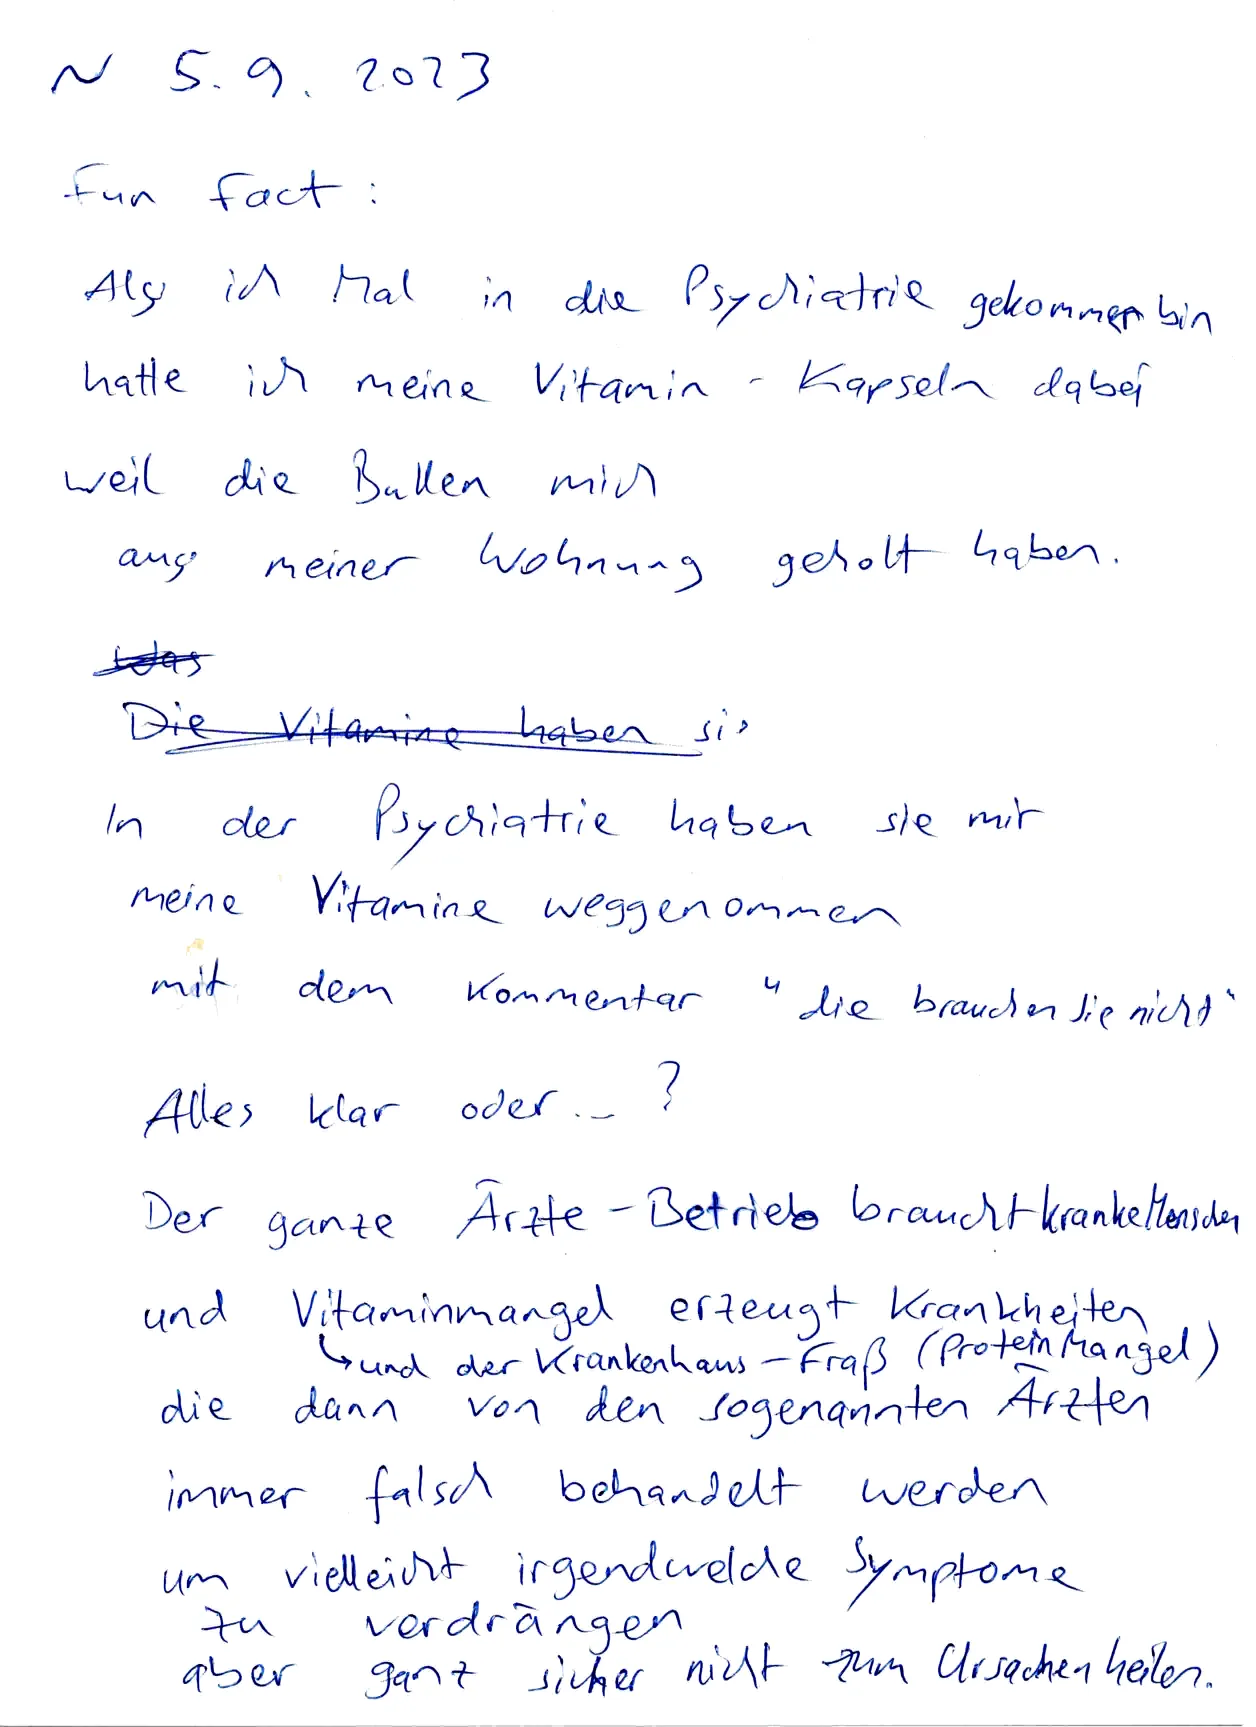 ~ 5.9.2023
Fun Fact:
Als ich Mal in die Psychiatrie gekommen bin
hatte ich meine Vitamin-Kapseln dabei
weil die Bullen mich
aus meiner Wohnung geholt haben.
Was
Die Vitamine haben sie
In der Psychiatrie haben sie mir
meine Vitamine weggenommen
mit dem Kommentar "die brauchen Sie nicht"
Alles klar oder...?
Der ganze Ärzte-Betrieb braucht kranke Menschen
und Vitaminmangel erzeugt Krankheiten
↳ und der Krankenhaus-Fraß (Protein Mangel)
die dann von den sogenannten Ärzten
immer falsch behandelt werden
um vielleicht irgendwelche Symptome
zu verdrängen
aber ganz sicher nicht zum Ursachen heilen.